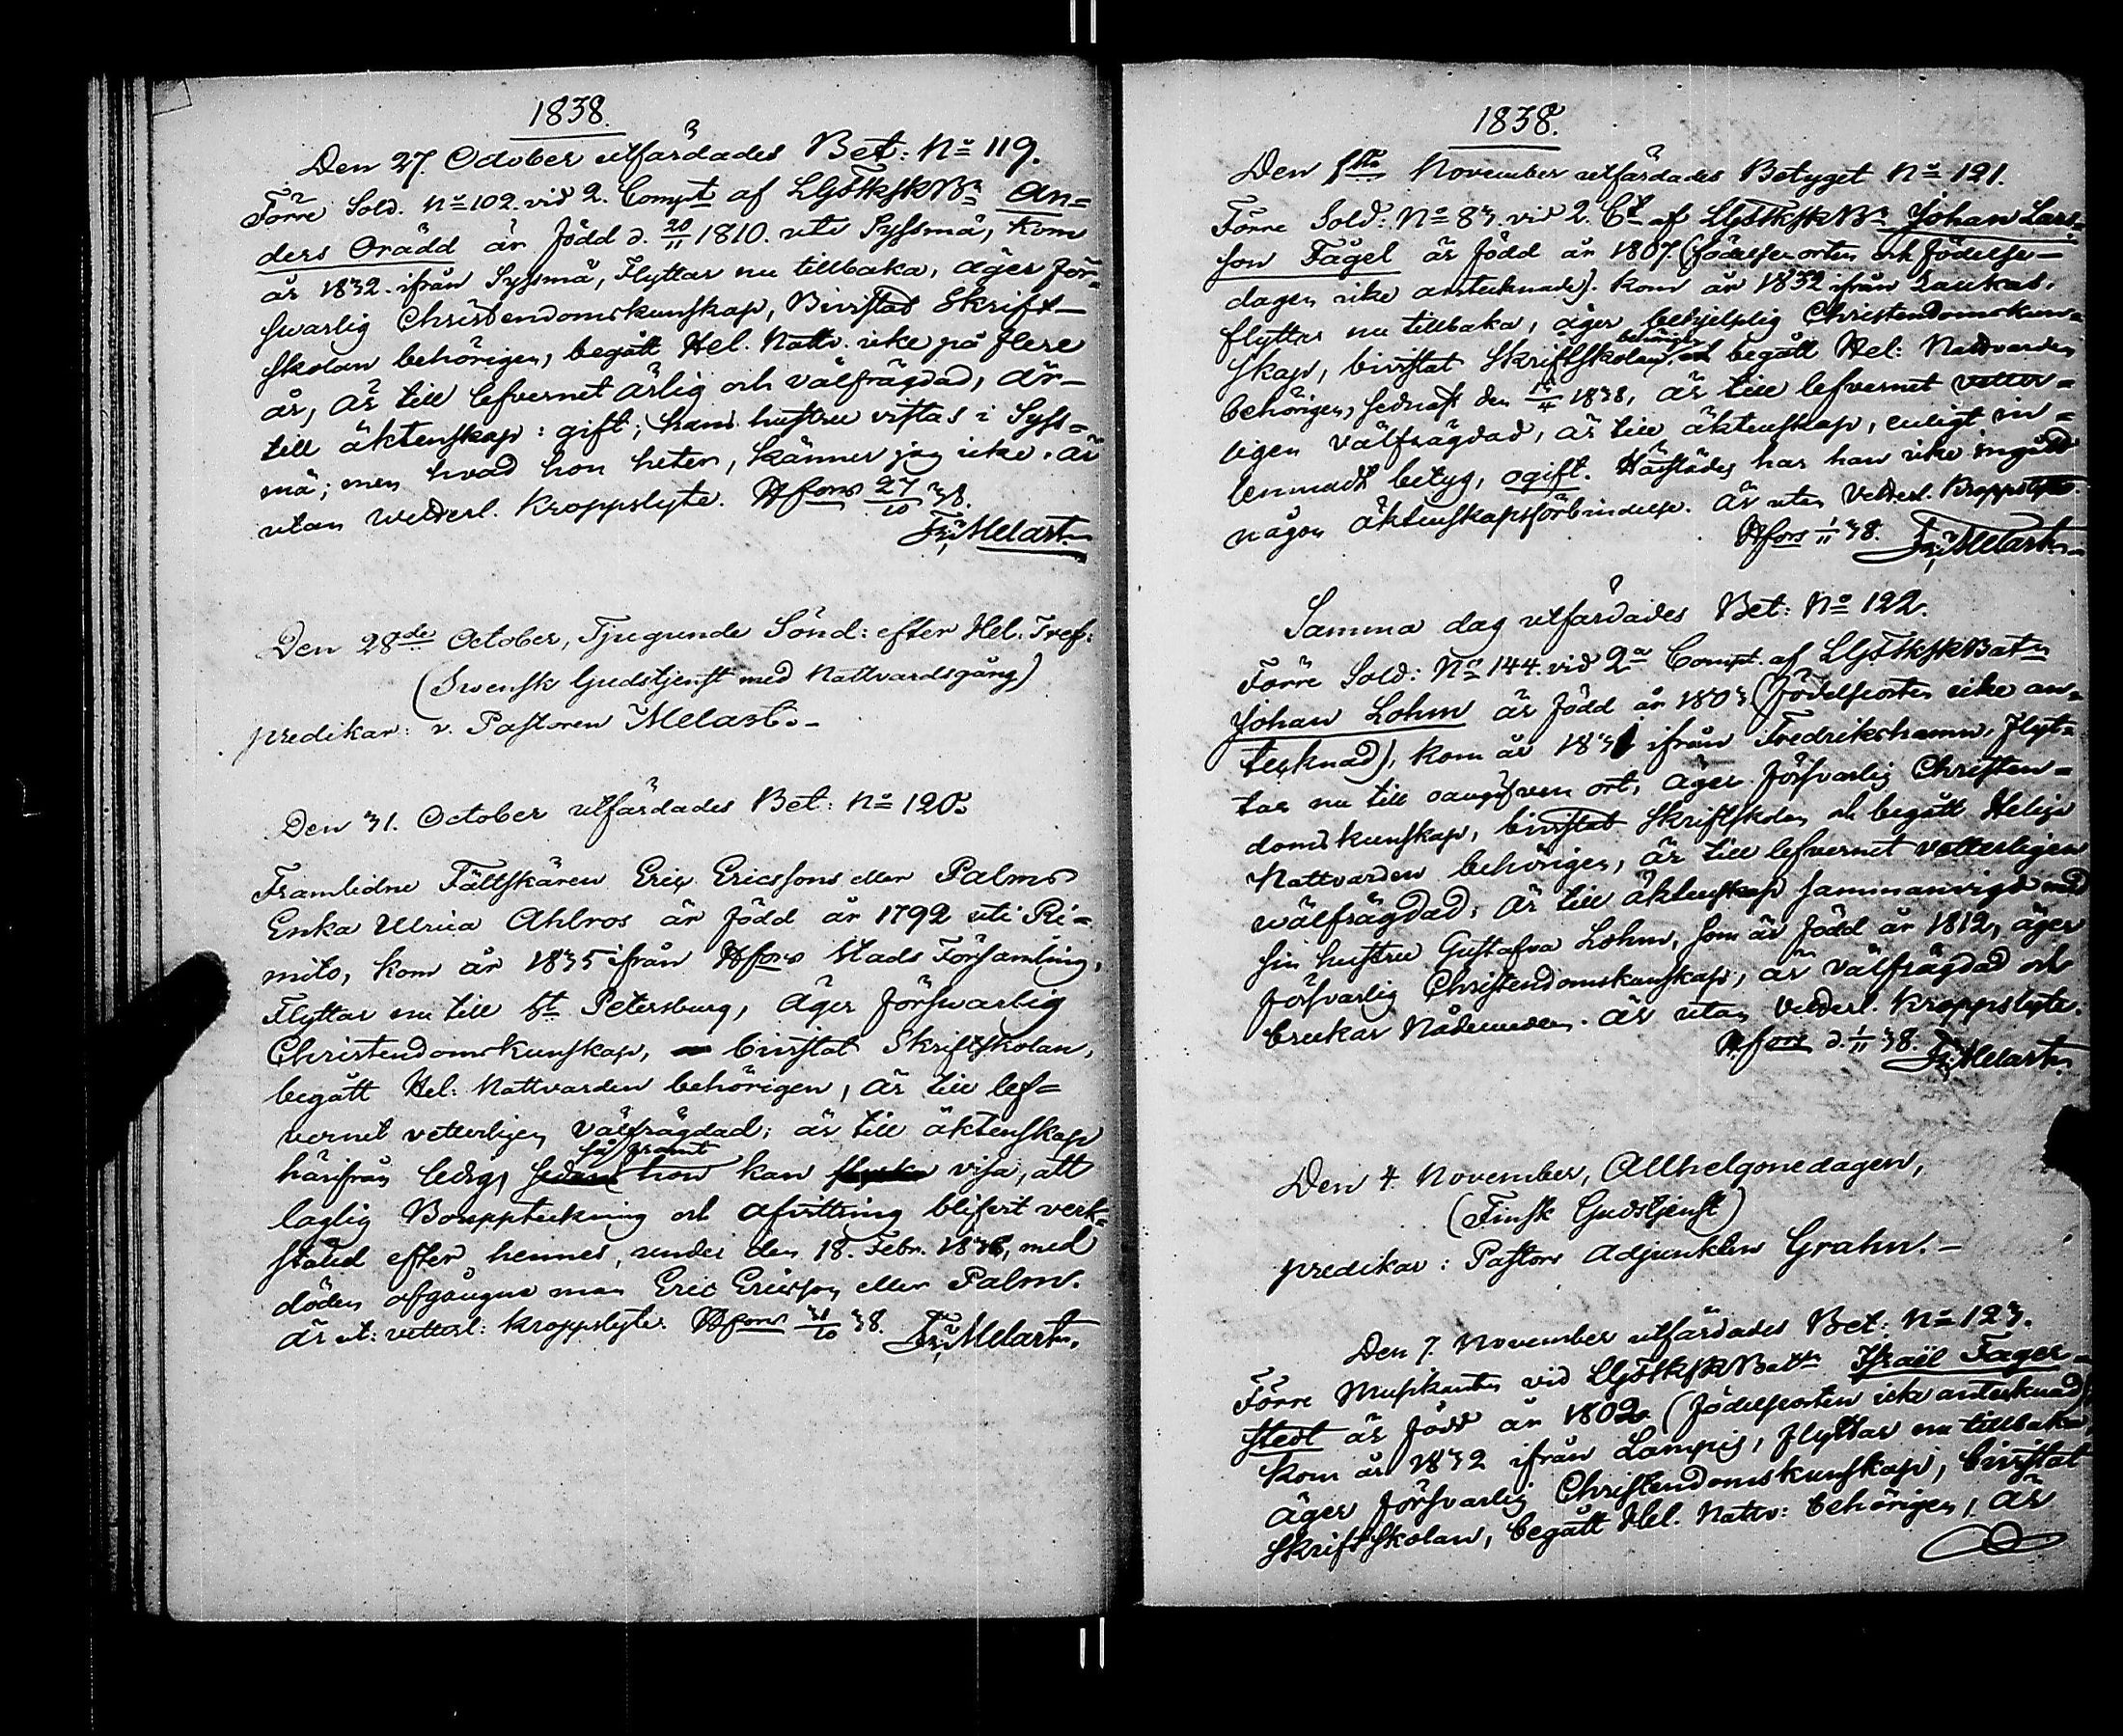 1838.
Den 27. October utfärdades Bet: No 119.
Förre Sold. No 102. vid 2. Compt af LGFkskBn An=
ders Orädd är född d. 20/11 1810. uti Syssmä, kom
år 1832. ifrån Syssmä, Flyttar nu tillbaka, äger för=
svarlig Christendomskunskap, Bivistat Skrift-
skolan behörigen, begått Hel. Nattv. icke på flere
år, är till lefvernet ärlig och välfrägdad, är-
till äktenskap: gift; hans hustru vistas i Syss=
mä; men hvad hon heter, känner jag icke. är
utan wetterl. kroppslyte. Hfors 27/10 38.
Fr: Melart.
Den 28de October, Tjugunde Sönd: efter Hel. Tref:
(Swensk Gudstjenst med Nattvardsgång)
predikar: v. Pastoren Melart.-
Den 31. October utfärdades Bet: No 120.
Framlidne Fältskären Eric Ericssons eller Palms
Enka Ulrica Ahlros är född år 1792 uti Ri=
mito, kom år 1835 ifrån Hfors Stads Församling,
Flyttar nu till St Petersburg, äger försvarlig
Christendomskunskap, bivistat Skriftskolan,
begått Hel: Nattvarden behörigen, är till lef=
vernet vetterligen välfrägdad; är till äktenskap
så framt
härifrån ledig, hon kan visa, att
laglig Bouppteckning och afvittring blifvit verk=
stäld efter hennes, under den 18. Febr. 1836, med
döden afgångne man Eric Ericsson eller Palm.
är ut: vetterl: kroppslyte. Hfors 31/10 38. Fr: Melart.
1838.
Den 1sta November utfärdades Betyget No 121.
Förre Sold: No 83. vid 2. Ct af LGFkskBn Johan Lars=
son Fägel är född år 1807. (födelseorten och födelse-
dagen icke antecknade). kom år 1832 ifrån Laukas,
flyttar nu tillbaka, äger behjelplig Christendomskun=
behörigen
skap, bivistat Skriftskolan, begått Hel: Nattvarden
behörigen, sednast den 15/4 1838, är till lefvernet vetter=
ligen välfrägdad, är till äktenskap, enligt in=
lemnadt betyg, ogift. Härstädes har han icke ingått
någon äktenskapsförbindelse. Är utan Vetterl. Kroppslyte.
Hfors 1/11 38. Fr: Melart.
Samma dag utfärdades Bet: No 122.
Förre Sold: No 144. vid 2a Compt. af LGFkskBatn
Johan Lohm är född år 1803 (födelseorten icke an=
tecknad), kom år 1831 ifrån Fredrikshamn, flyt=
tar nu till oangifven ort, äger försvarlig Christen=
domskunskap, bivistat Skriftskolan och begått Heliga
Nattvarden behörigen, är till lefvernet vetterligen
wälfrägdad; är till äktenskap sammanvigd med
sin hustru Gustafva Lohm, som är född år 1812, äger
försvarlig Christendomskunskap, är välfrägdad och
brukar Nådemedlen. är utan vetterl. kroppslyte.
Hfors d. 1/11 38. Fr: Melart.
Den 4. November, Allhelgonedagen,
(Finsk Gudstjenst)
predikar: Pastors Adjunkten Grahn.-
Den 7. November utfärdades Bet: No 123.
Förre Musikanten vid LGFkskBattn Israël Fager=
stedt är född år 1802. (födelseorten icke antecknad),
kom år 1832 ifrån Lampis, flyttar nu tillbaka,
äger försvarlig Christendomskunskap, bivistat
Skriftskolan, begått Hel. Nattv: behörigen, är